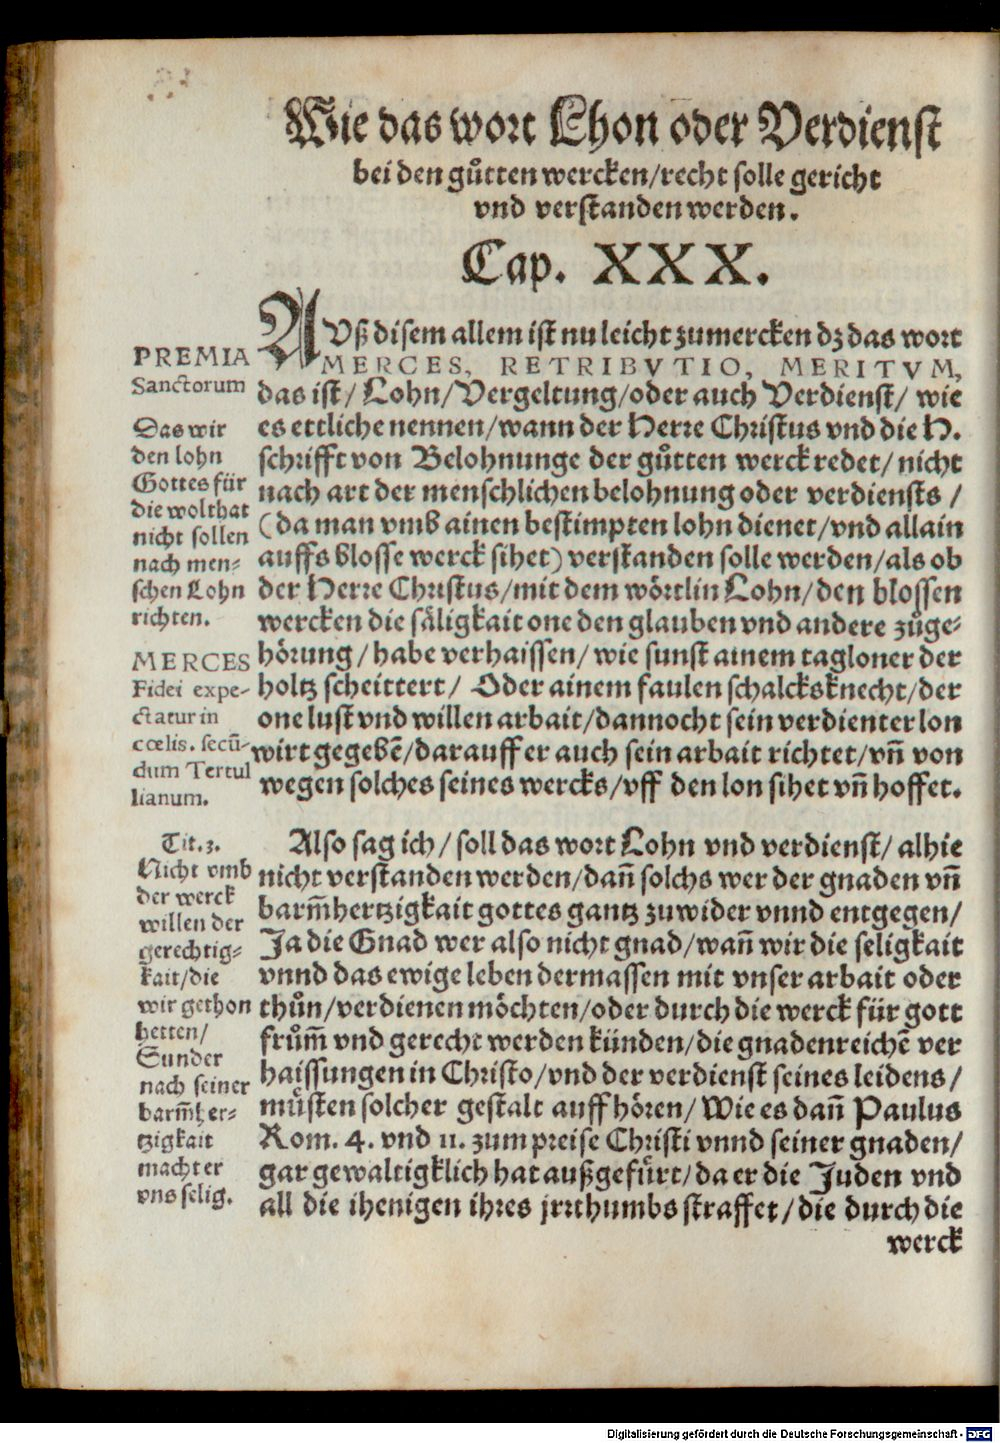 Wie das wort Lhon oder Verdienst
bei den gůtten wercken/recht solle gericht
vnd verstanden werden.
Cap. XXX.
AVß disem allem ist nu leicht zumercken dz das wort
MERCES, RETRIBVTIO, MERITVM,
das ist/ Lohn/Vergeltung/oder auch Verdienst/ wie
es ettliche nennen/wann der Herre Christus vnd die H.
schrifft von Belohnunge der gůtten werck redet/ nicht
nach art der menschlichen belohnung oder verdiensts /
(da man vmb ainen bestimpten lohn dienet/vnd allain
auffs blosse werck sihet) verstanden solle werden/als ob
der Herre Christus/mit dem wörtlin Lohn/den blossen
wercken die säligkait one den glauben vnd andere zůge-
hörung/habe verhaissen/ wie sunst ainem tagloner der
holtz scheittert/ Oder ainem faulen schalcksknecht/der
one lust vnd willen arbait/dannocht sein verdienter lon
wirt gegebē/darauff er auch sein arbait richtet/vn̄ von
wegen solches seines wercks/vff den lon sihet vn̄ hoffet.
Also sag ich/ soll das wort Lohn vnd verdienst/ alhie
nicht verstanden werden/dan̄ solchs wer der gnaden vn̄
barm̄hertzigkait gottes gantz zuwider vnnd entgegen/
Ja die Gnad wer also nicht gnad/wan̄ wir die seligkait
vnnd das ewige leben dermassen mit vnser arbait oder
thůn/verdienen möchten/oder durch die werck für gott
frům̄ vnd gerecht werden künden/die gnadenreichē ver
haissungen in Christo/vnd der verdienst seines leidens/
müsten solcher gestalt auff hören/ Wie es dan̄ Paulus
Rom. 4. vnd 11. zum preise Christi vnnd seiner gnaden/
gar gewaltigklich hat außgefürt/da er die Juden vnd
all die ihenigen ihres jrrthumbs straffet/die durch die
werck
PREMIA
Sanctorum
Das wir
den lohn
Gottes für
die wolthat
nicht sollen
nach men-
schen Lohn
richten.
MERCES
Fidei expe-
ctatur in
cœlis. secū-
dum Tertul
lianum.
Tit.3.
Nicht vmb
der werck
willen der
gerechtig-
kait/die
wir gethon
hetten/
Sunder
nach seiner
barm̄her-
tzigkait
macht er
vns selig.
Digitalisierung gefördert durch die Deutsche Forschungsgemeinschaft - DFG